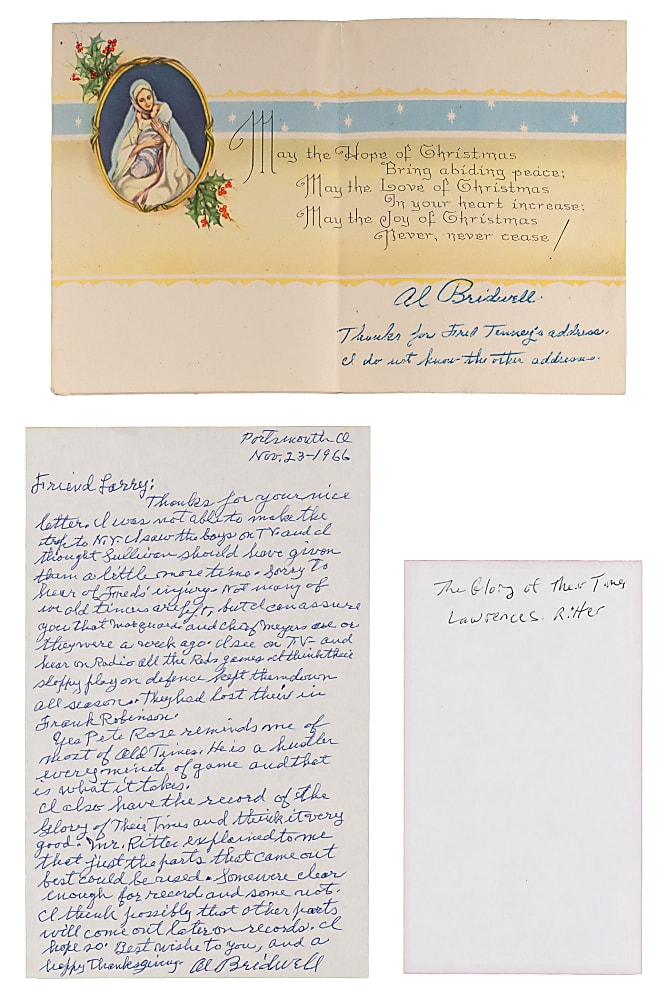 May the Hope of Christmas
Bring abiding peace;
May the Love of Christmas
In your heart increase;
May the Joy of Christmas
Never, never cease!
Al Bridwell.
Thanks for Fred Tenney's address.
I do not know the other address.
Portsmouth O
Nov. 23-1966
Friend Larry:
Thanks for your nice
letter. I was not able to make the
trip to N.Y. I saw the boys on TV and I
thought Sullivan should have given
them a little more time. Sorry to
hear of Freds' injury. Not many of
we old timers are left, but I can assure
you that Marquard and Chief Meyers are or
they were a week ago. I see on TV- and
hear on Radio all the Reds games. I think their
sloppy play on defence kept them down
all season. They had lost their in
Frank Robinson.
Yes Pete Rose reminds me of
most of Old Times. He is a hustler
every minute of game and that
is what it takes.
I also have the record of the
Glory of Their Times and think it very
good. Mr. Ritter explained to me
that just the parts that came out
best could be used. Some were clear
enough for record and some not.
I think possibly that other parts
will come out later on records. I
hope so. Best wishe to you, and a
happy Thanksgiving. Al Bridwell
The Glory of Their Times
Lawrence S. Ritter